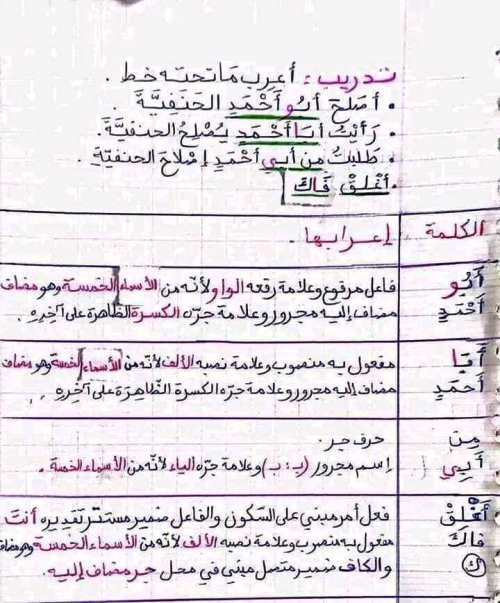 تدريب: أعرب ما تحته خط.
• أصلحَ أبُو أَحْمَدٍ الحَنَفِيَّةَ.
• رَأَيْتُ أبَا أَحْمَدٍ يُصْلِحُ الحنفيَّةَ.
• طَلبتُ من أبي أحْمَدٍ إصْلاحَ الحنفيّة.
• أَغْلِقْ فَاكَ
الكلمة إعرابها.
أَبُو فاعل مرفوع وعلامة رفعه الواو لأنّه من الأسماء الخمسة وهو مضاف
أَحْمَدٍ مضاف إليه مجرور وعلامة جرّه الكسرة الظاهرة على آخره.
أَبَا مفعول به منصوب وعلامة نصبه الألف لأنّه من الأسماء الخمسة وهو مضاف
أحمدٍ مضاف إليه مجرور وعلامة جرّه الكسرة الظّاهِرَة على آخِرِهِ
مِن حرف جر.
أَبِي إسم مجرور (بـ: ب) وعلامة جرّه الياء لأنّه من الأسماء الخمسة.
أَغْلِقْ فعل أمر مبني على السّكون والفاعل ضمير مستتر تقديره أنتَ
فاكَ مفعول به منصوب وعلامة نصبه الألف لأنّه من الأسماء الخمسة وهو مضاف
ك والكاف ضمير متصل مبني في محل جر مضاف إليه.